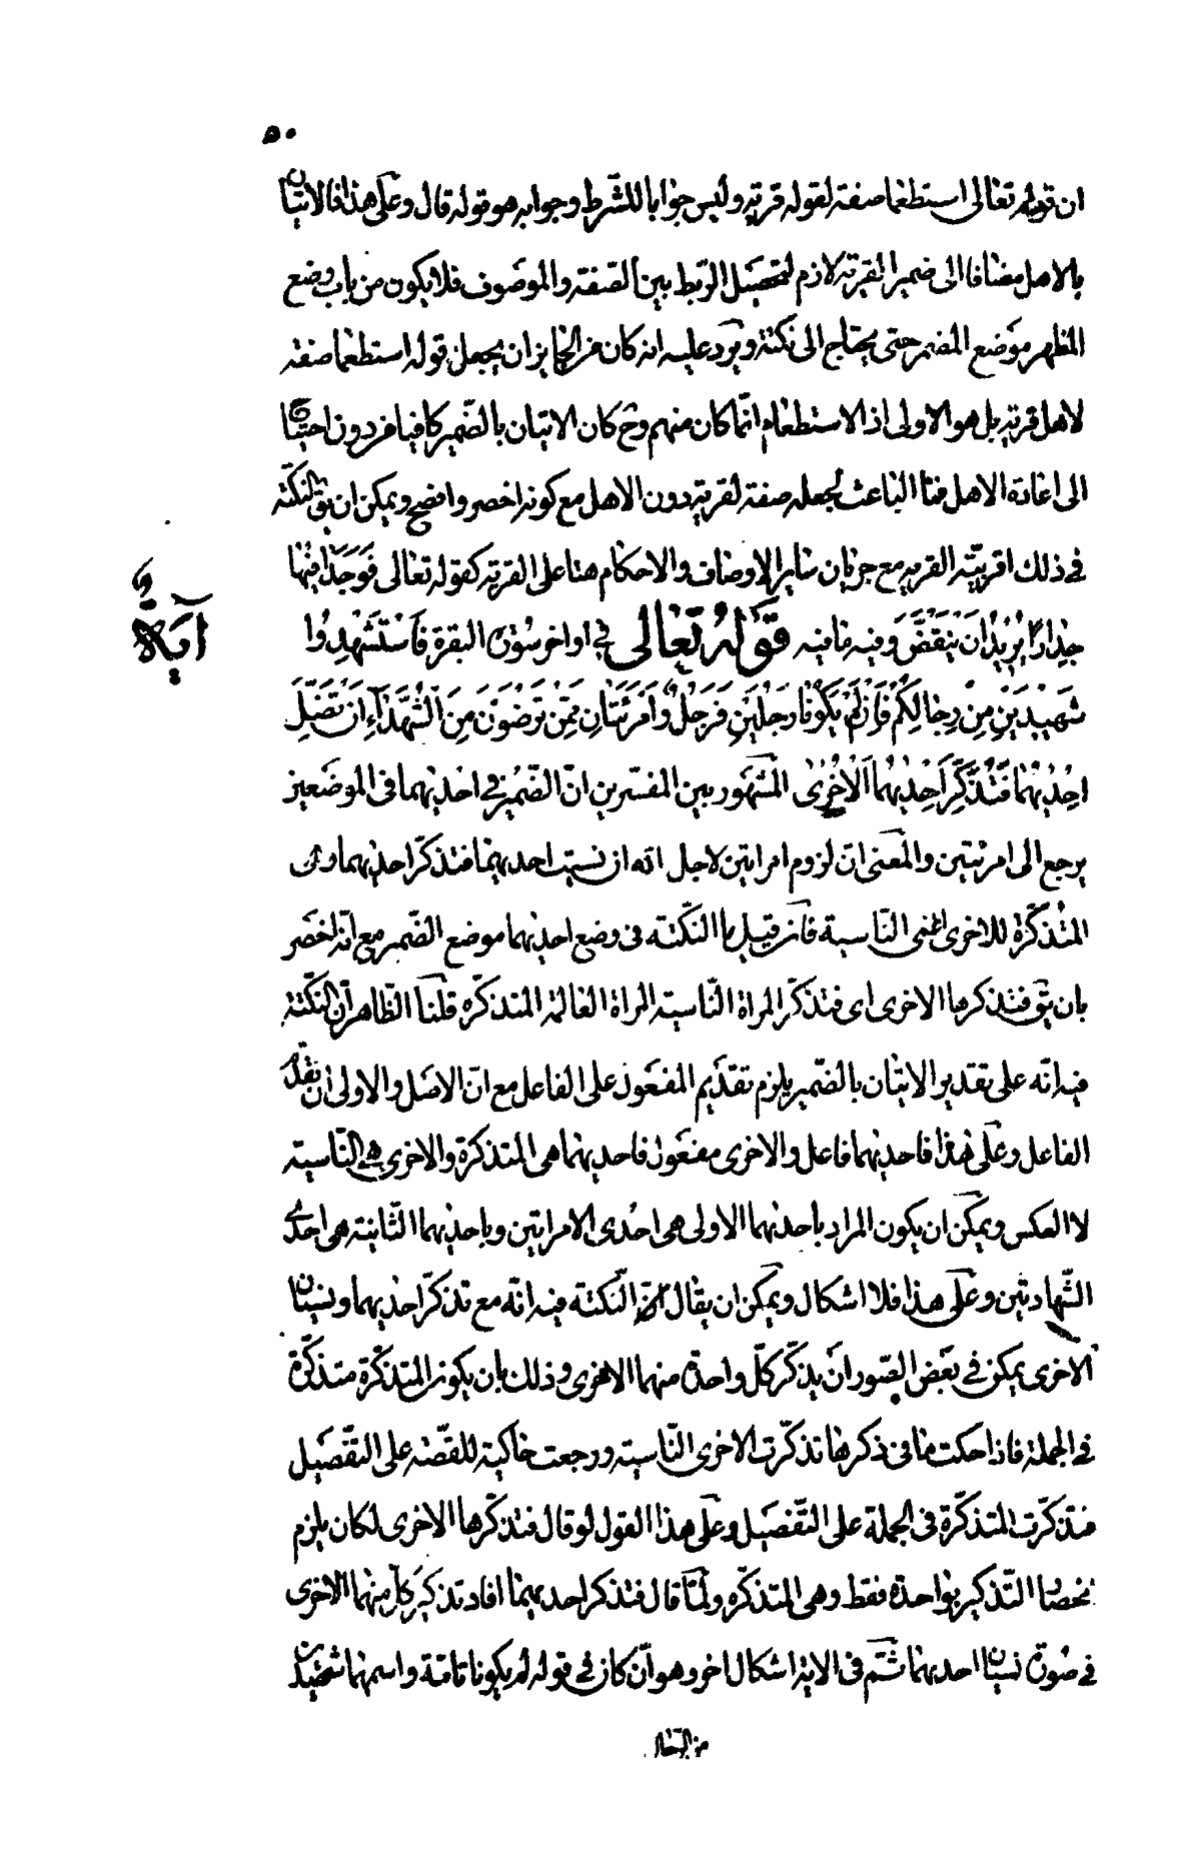 ٥٠
ان قوله تعالى استطعما صفة لقوله قرية وليس جوابا للشرط وجوابه هو قوله قال وعلى هذا فالاتيان
بالاهل مضافا الى ضمير القرية لازم لتحصيل الربط بين الصفة والموصوف فلا يكون من باب وضع
المظهر موضع المضمر حتى يحتاج الى نكتة ويرد عليه انه كان من الجايز ان يجعل قوله استطعما صفة
لاهل قرية بل هو الاولى اذ الاستطعام انما كان منهم وح كان الاتيان بالضمير كافيا من دون احتياج
الى اعادة الاهل فما الباعث لجعله صفة لقرية دون الاهل مع كونه اخصر واوضح ويمكن ان يق النكتة
في ذلك اقربية القرية مع جريان ساير الاوصاف والاحكام هنا على القرية كقوله تعالى فَوَجَدَا فِيهَا
جِدَارًا يُرِيدُ اَنْ يَنْقَضَّ وفيه ما فيه قَوْلُهُ تَعَالى في اواخر سورة البقرة فَاسْتَشْهِدُوا
آية و
شَهِيدَيْنِ مِنْ رِجَالِكُمْ فَاِنْ لَمْ يَكُونَا رَجُلَيْنِ فَرَجُلٌ وَامْرَئَتَانِ مِمَّنْ تَرْضَوْنَ مِنَ الشُّهَدَآءِ اَنْ تَضِلَّ
اِحْدٰيهُمَا فَتُذَكِّرَ اِحْدٰيهُمَا الْاُخْرٰى المشهور بين المفسرين انّ الضمير في احديهما في الموضعين
يرجع الى امرئتين والمعنى ان لزوم امرأتين لاجل انه ان نسيت احديهما فتذكر احديهما وهي
المتذكّرة للاخرى اعني الناسية فان قيل ما النكتة في وضع احديهما موضع الضمير مع انه اخصر
بان يق فتذكرها الاخرى اى فتذكر المراة الناسية المراة العالمة المتذكره قلنا الظاهر ان النكتة
فيه انّه على تقدير الاتيان بالضمير يلزم تقديم المفعول على الفاعل مع انّ الاصل والاولى ان تقدم
الفاعل وعلى هذا فاحديهما فاعل والاخرى مفعول فاحديهما هى المتذكرة والاخرى هي الناسية
لا العكس ويمكن ان يكون المراد باحديهما الاولى هى احدى الامراتين وباحديهما الثانية هى احدى
الشهادتين وعلى هذا فلا اشكال ويمكن ان يقال النكتة فيه انّه مع تذكّر احديهما ونسيان
الاخرى يمكن في بعض الصور ان يذكّر كلّ واحدة منهما الاخرى وذلك بان يكون المتذكّرة متذكّرة
في الجملة فاذا حكت ما في ذكرها تذكّرت الاخرى الناسية ورجعت حاكية للقصّة على التفصيل
فتذكّرت المتذكّرة في الجملة على التفصيل وعلى هذا القول لو قال فتذكّرها الاخرى لكان يلزم
اختصاص التذكير بواحدة فقط وهى المتذكّرة ولمّا قال فتذكر احديهما افاد تذكير كلّ منهما الاخرى
في صورة نسيان احديهما ثم في الاية اشكال اخر وهو ان كان في قوله لم يكونا تامّة واسمهما شهيدان
من الرجال